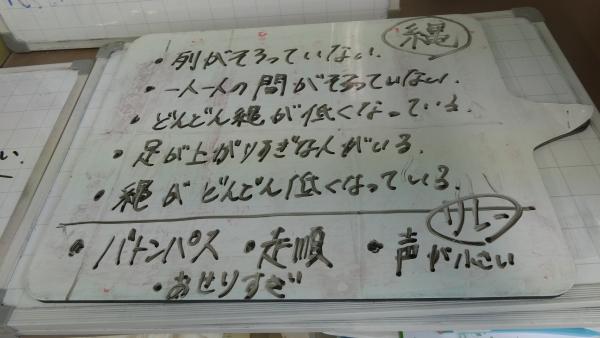 縄
・列がそろっていない.
・一人一人の間がそろっていない.
・どんどん縄が低くなっている.
・足が上がりすぎな人がいる.
・縄がどんどん低くなっている.
リレー
・バトンパス ・走順 ・声が小さい
・あせりすぎ
い.